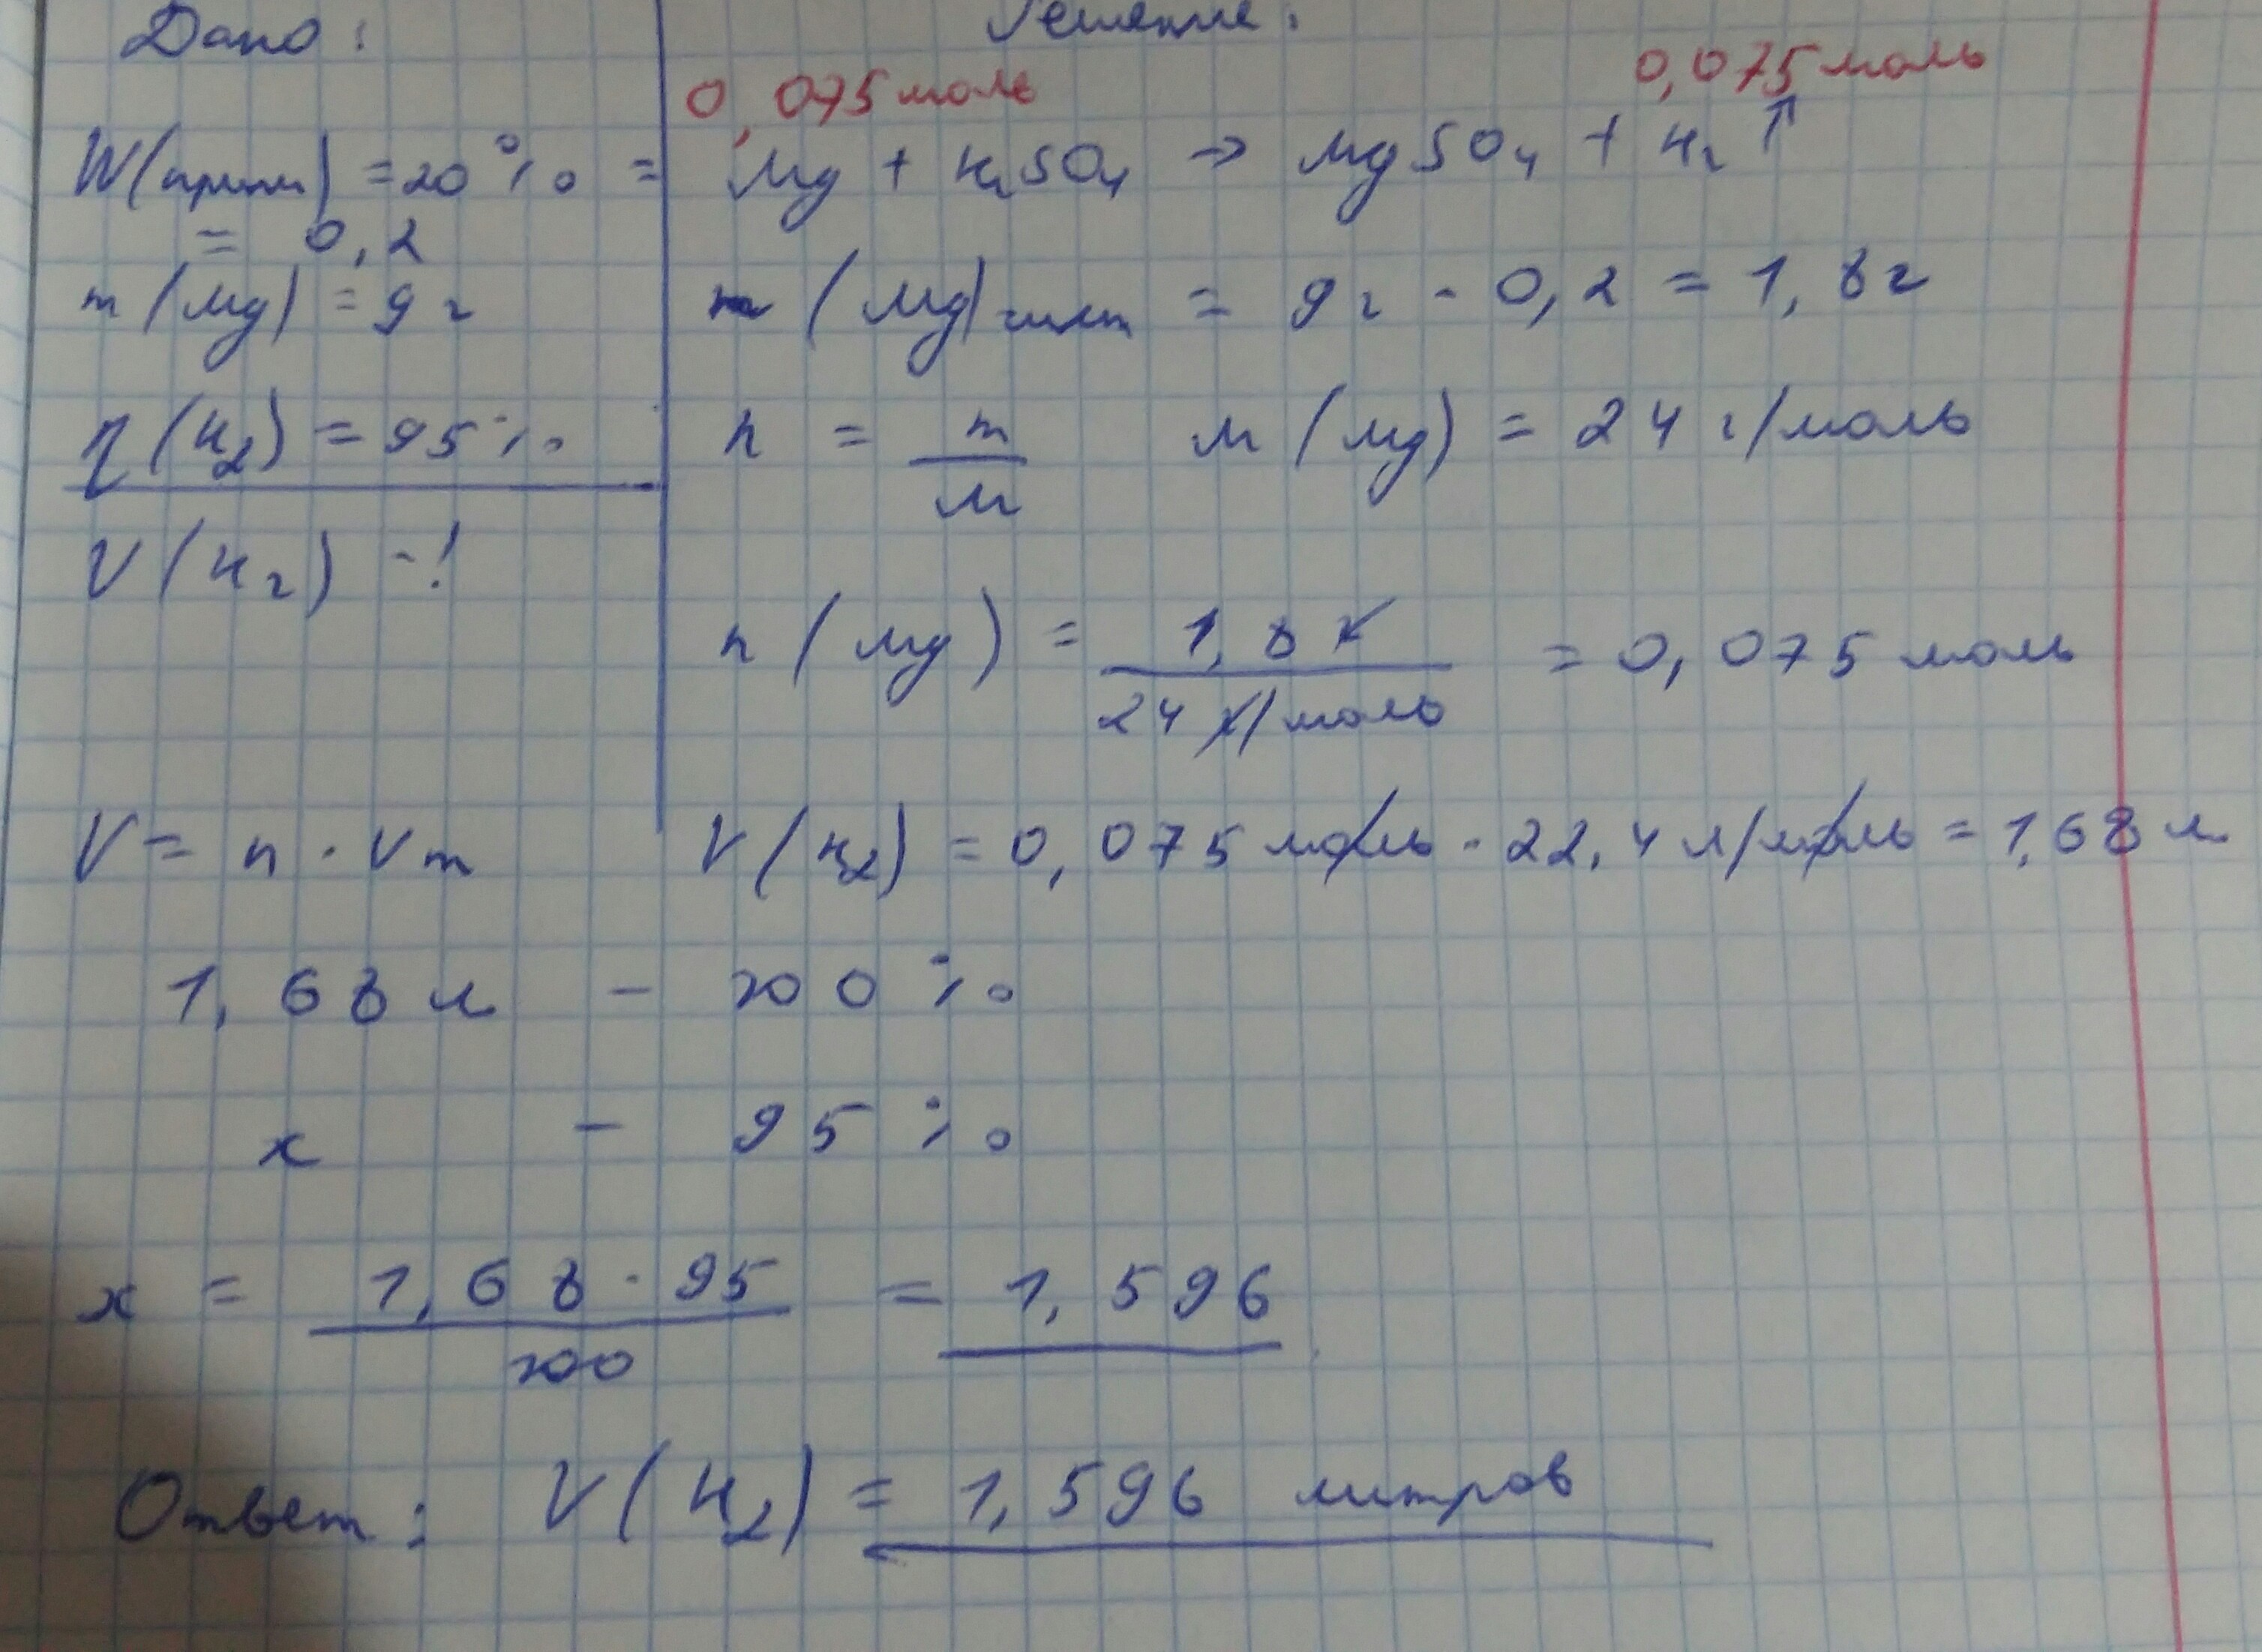 Дано:
W(прим) = 20% =
= 0,2
m(Mg) = 9г
η(H₂) = 95%
V(H₂) - !
Решение:
0,075 моль 0,075 моль
Mg + H₂SO₄ → MgSO₄ + H₂↑
m(Mg)чист = 9г · 0,2 = 1,8г
n = m/M M(Mg) = 24 г/моль
n(Mg) = 1,8 г / 24 г/моль = 0,075 моль
V = n · Vm V(H₂) = 0,075 моль · 22,4 л/моль = 1,68 л
1,68 л - 100%
x - 95%
x = 1,68 · 95 / 100 = 1,596
Ответ: V(H₂) = 1,596 литров